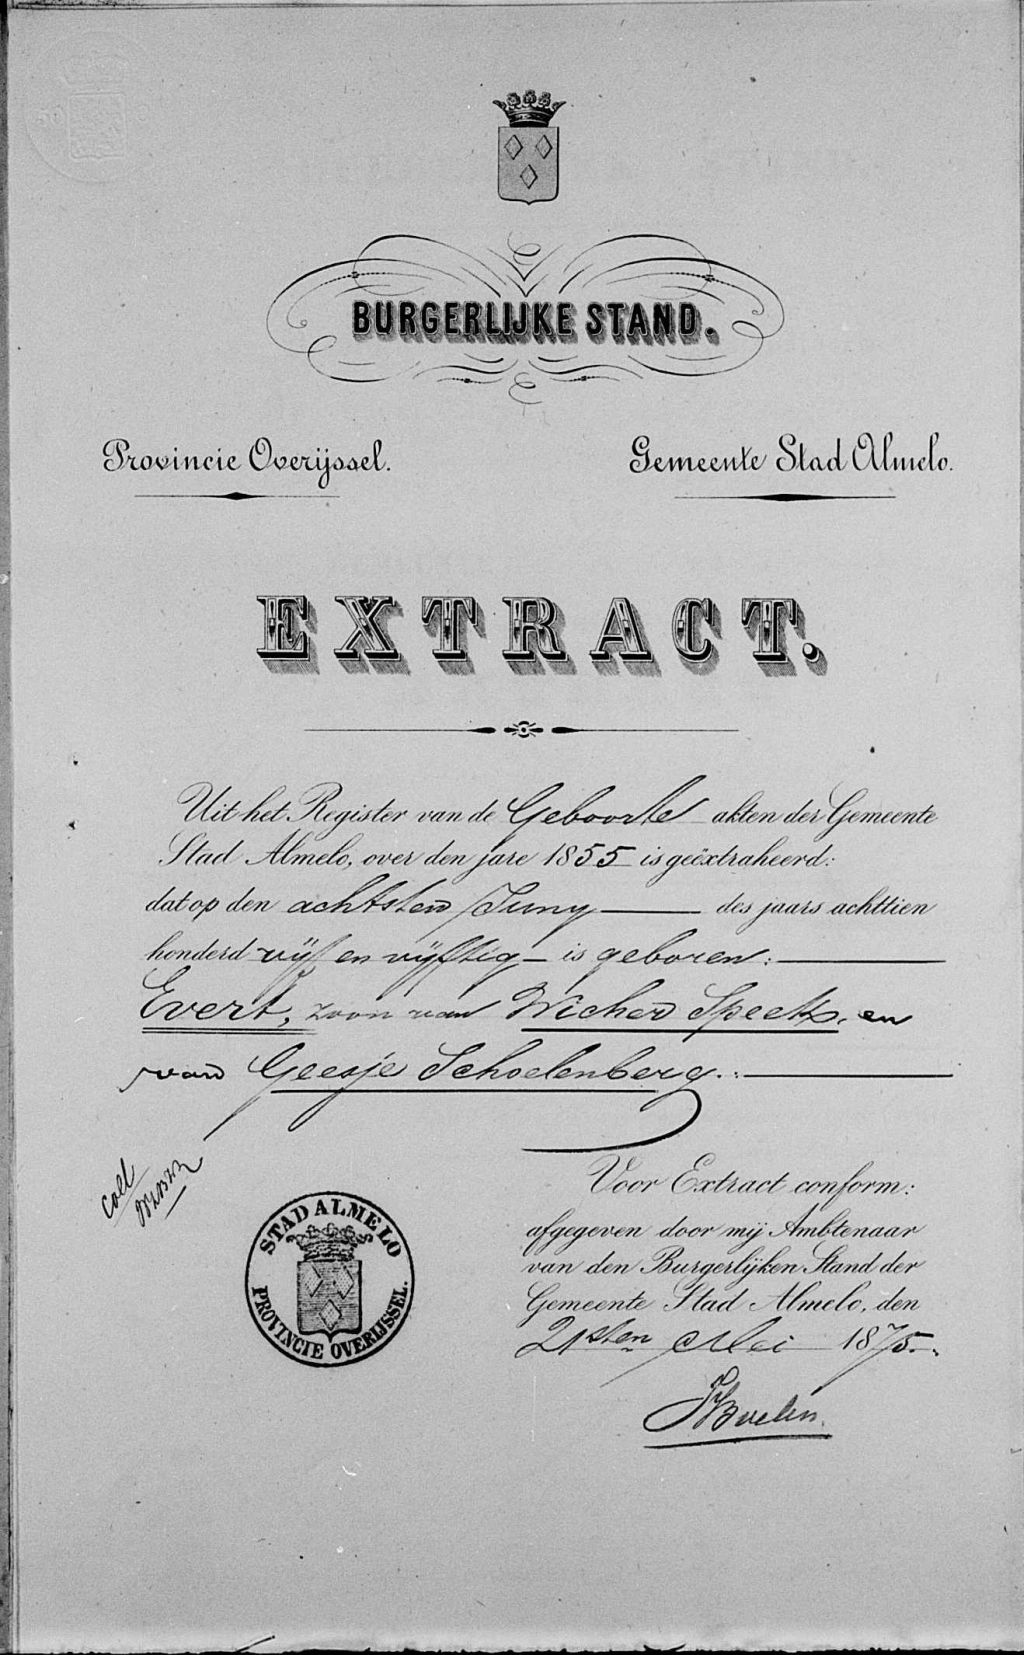 BURGERLIJKE STAND.
Provincie Overijssel.
Gemeente Stad Almelo.
EXTRACT.
Uit het Register van de Geboorte akten der Gemeente
Stad Almelo, over den jare 1855 is geëxtraheerd:
dat op den achtsten Juny des jaars achttien
honderd vijf en vijftig is geboren:
Evert, zoon van Wicher Speek, en
van Geesje Schoelenberg.
Coll
Voor Extract conform:
afgegeven door mij Ambtenaar
van den Burgerlijken Stand der
Gemeente Stad Almelo, den
21sten Mei 1875.
STAD ALMELO
PROVINCIE OVERIJSSEL.